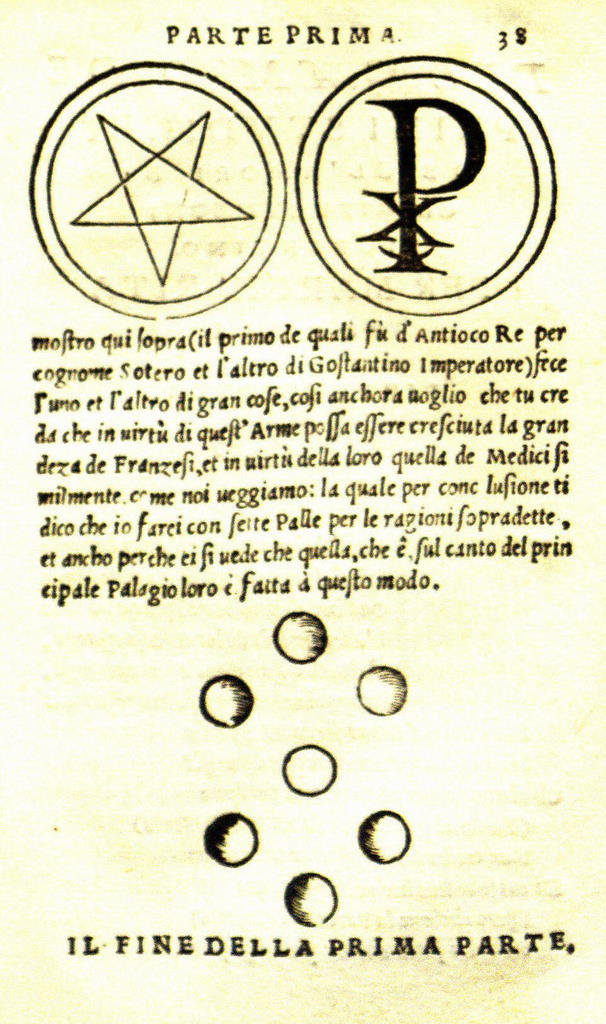 PARTE PRIMA. 38
moſtro qui ſopra (il primo de quali fù d'Antioco Re per
cognome Sotero et l'altro di Goſtantino Imperatore) fece
l'uno et l'altro di gran coſe, coſi anchora uoglio che tu cre
da che in uirtù di queſt'Arme poſſa eſſere creſciuta la gran
deza de Franzeſi, et in uirtù della loro quella de Medici ſi
milmente. come noi ueggiamo: la quale per conc luſione ti
dico che io farei con ſette Palle per le ragioni ſopradette,
et ancho perche ei ſi uede che quella, che è ſul canto del prin
cipale Palagio loro è fatta à queſto modo.
IL FINE DELLA PRIMA PARTE.